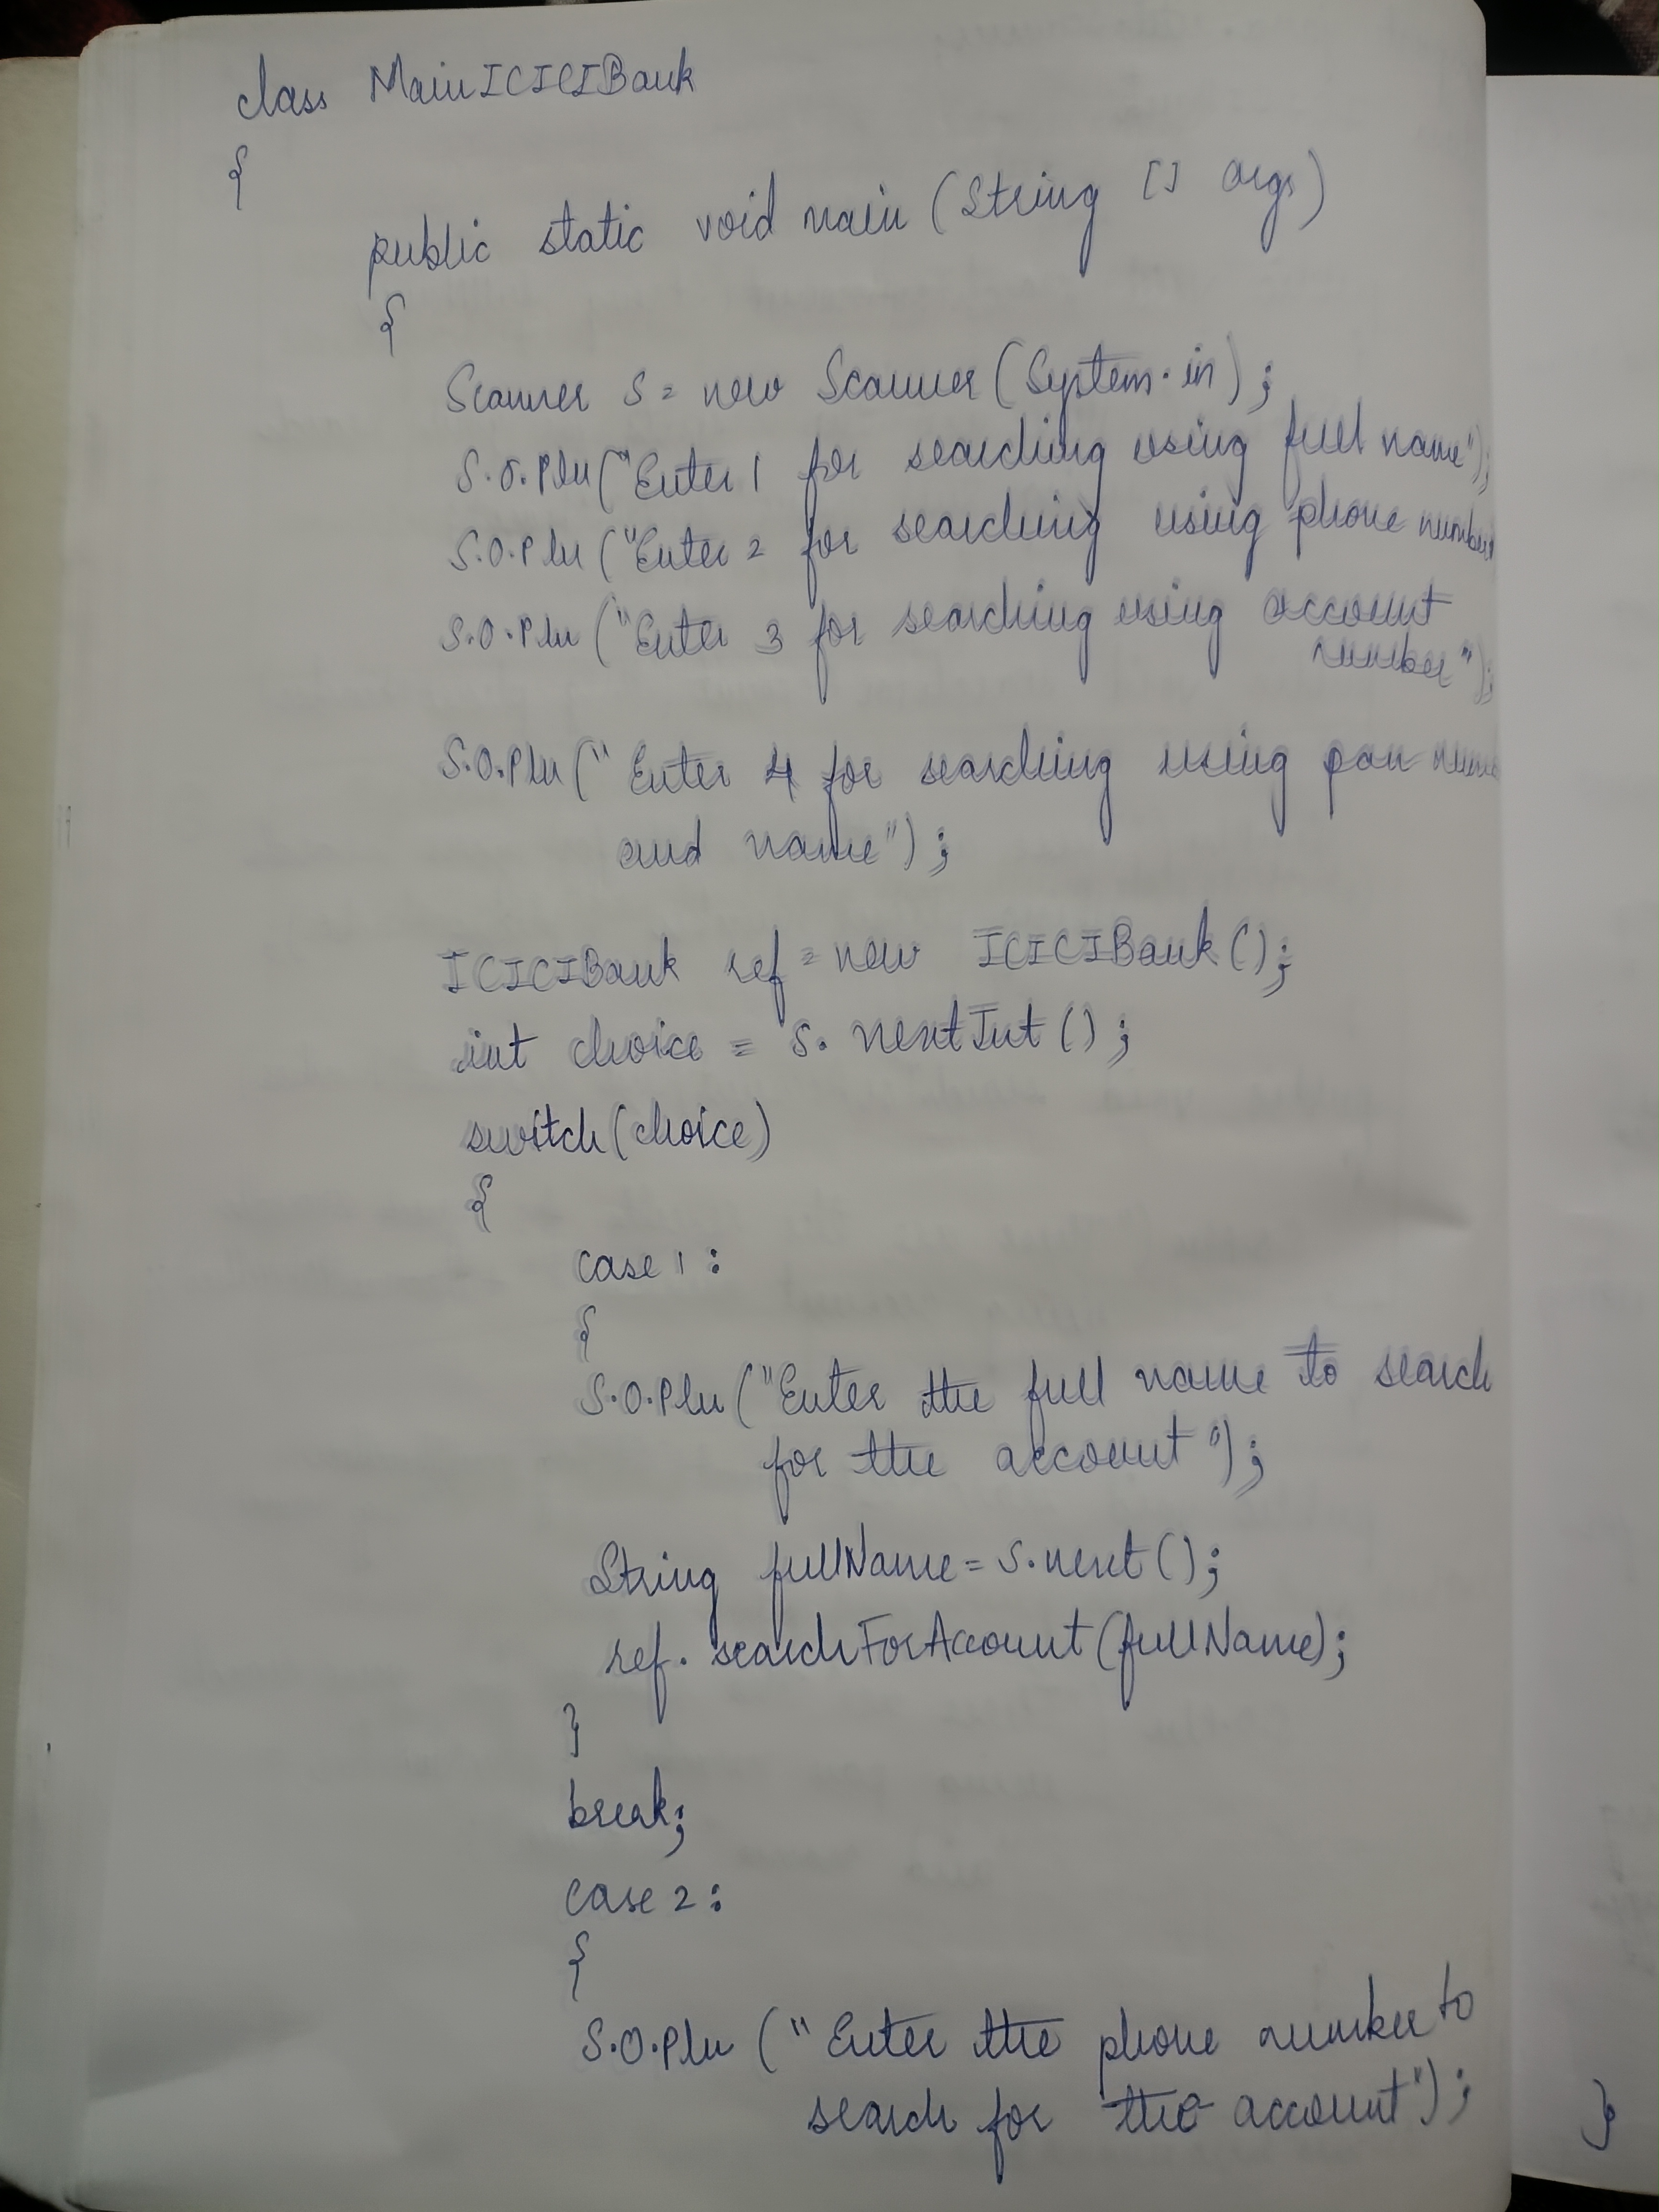 class MainICICIBank
{
public static void main (String [] args)
{
Scanner S = new Scanner (System.in);
S.O.Pln ("Enter 1 for searching using full name");
S.O.Pln ("Enter 2 for searching using phone number
S.O.Pln ("Enter 3 for searching using account
number");
S.O.Pln (" Enter 4 for searching using pan
and name");
ICICIBank ref = new ICICIBank ();
int choice = S. nextInt ();
switch (choice)
{
case 1 :
{
S.O.Pln ("Enter the full name to search
for the account ");
String fullName = S.next ();
ref. searchForAccount (fullName);
}
break;
case 2 :
{
S.O.Pln (" Enter the phone number to
search for the account");
}